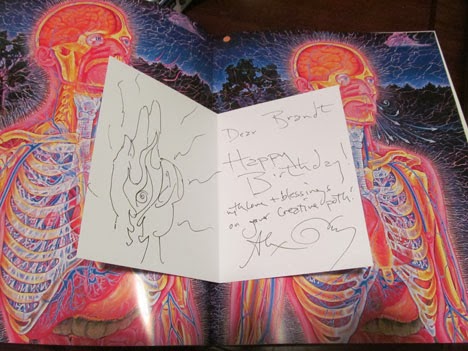 Dear Brandt
Happy
Birthday!
with love + blessings
on your Creative path!
Alex Grey